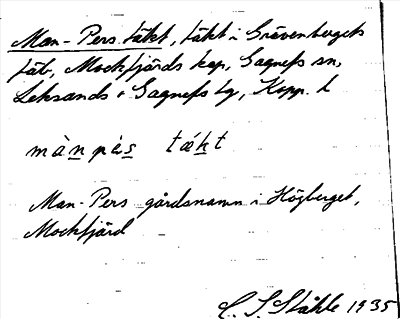 Man-Pers täkt, täkt i Grävenbergets
fäb, Mockfjärds kap, Gagnefs sn,
Leksands o Gagnefs tg, Kopp. l
màn pès tä́kt
Man-Pers gårdsnamn i Högberget,
Mockfjärd
C. I. Ståhle 1935